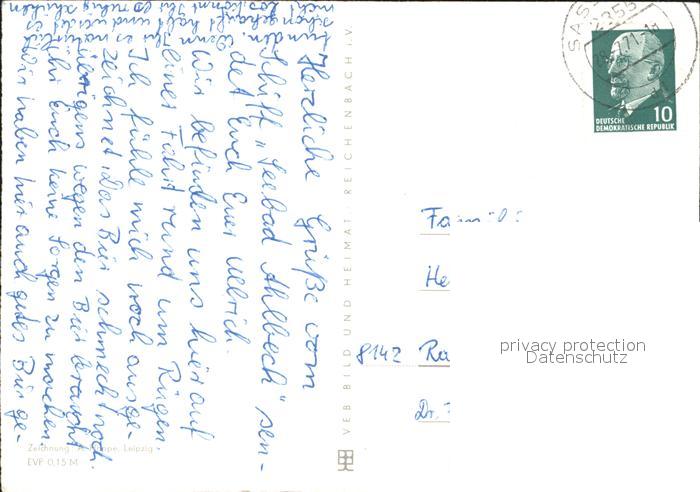 Herzliche Grüße vom
Schiff „Seebad Ahlbeck" sen-
det Euch Euer Ullrich.
Wir befinden uns hier auf
einer Fahrt rund um Rügen.
Ich fühle mich noch ausge-
zeichnet. Das Bier schmeckt noch.
Übrigens wegen dem Bier braucht
Ihr Euch keine Sorgen zu machen.
Wir haben hier auch gutes Bier ge-
funden. Wenn
schon geschaut habt und
nicht
VEB BILD UND HEIMAT, REICHENBACH i.V.
Zeichnung: Leipzig
EVP 0,15 M
SASS
2355
71-1
10
DEUTSCHE
DEMOKRATISCHE REPUBLIK
Fam
He
8142 Ra
Dr.
privacy protection
Datenschutz